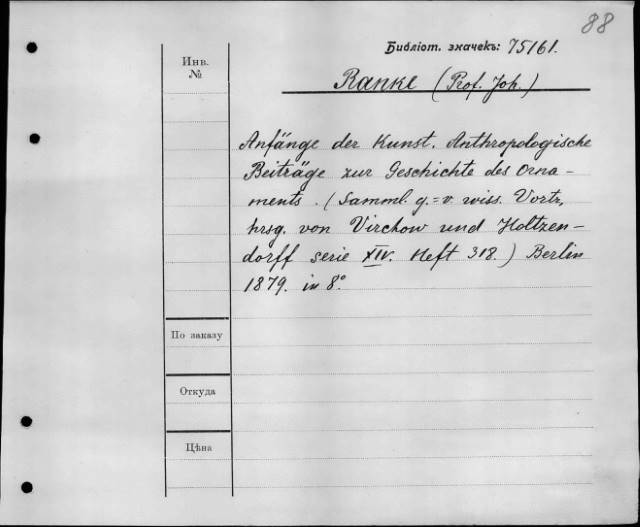 88
Библіот. значекъ: 75161.
Инв.
№
Ranke (Prof. Joh.)
Anfänge der Kunst. Anthropologische
Beiträge zur Geschichte des Orna-
ments. (Samml. g.=v. wiss. Vortr,
hrsg. von Virchow und Holtzen-
dorff serie XIV. Heft 318.) Berlin
1879. in 8°.
По заказу
Откуда
Цѣна